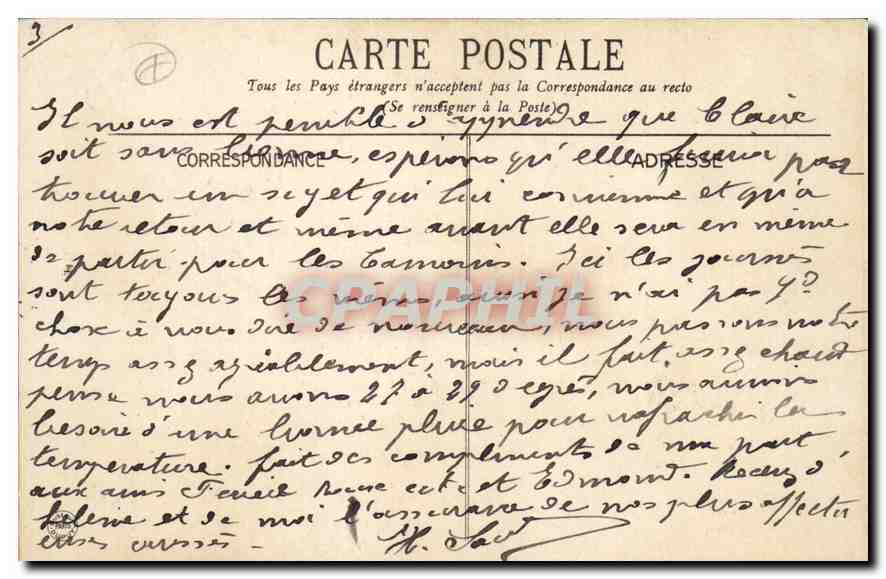 3
CARTE POSTALE
Tous les Pays étrangers n'acceptent pas la Correspondance au recto
(Se renseigner à la Poste)
Il nous est penible d'apprendre que Claire
CORRESPONDANCE
ADRESSE
soit sans bonne, espérons qu'elle finira par
trouver un sujet qui lui convienne et qu'à
notre retour et même avant elle sera en même
de partir pour les Tamaris. Ici les journées
sont toujours les mêmes, aussi je n'ai pas gd
chose à vous dire de nouveau, nous passons notre
temps assez agréablement, mais il fait assez chaud
pense nous avons 27 à 29 degrés, nous aurions
besoin d'une bonne pluie pour rafraichir la
température. fait des compliments de ma part
aux amis et Edmond. Recevez d'
hélène et de moi l'assurance de nos plus affectu
euses caresses -
H.
CPAPHIL